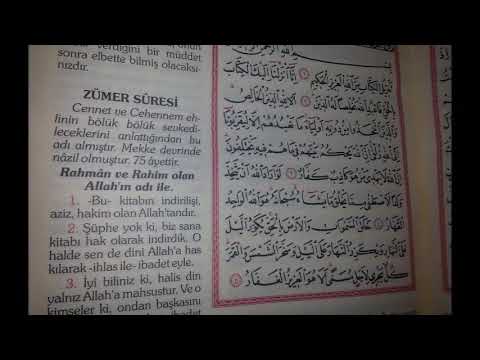 verdiğini bir müddet
sonra elbette bilmiş olacaksı-
nızdır.
ZÜMER SÛRESİ
Cennet ve Cehennem eh-
linin bölük bölük sevkedi-
leceklerini anlattığından bu
adı almıştır. Mekke devrinde
nâzil olmuştur. 75 âyettir.
Rahmân ve Rahîm olan
Allah'ın adı ile.
1. -Bu- kitabın indirilişi,
aziz, hakim olan Allah'tandır.
2. Şüphe yok ki, biz sana
kitabı hak olarak indirdik. O
halde sen de dini Allah'a has
kılarak -ihlas ile- ibadet eyle.
3. İyi biliniz ki, halis din
yalnız Allah'a mahsustur. Ve o
kimseler ki, ondan başkasını
تَنْزِيلُ الْكِتَابِ مِنَ اللّٰهِ الْعَزِيزِ الْحَكِيمِ ١ اِنَّٓا اَنْزَلْنَٓا اِلَيْكَ الْكِتَابَ
بِالْحَقِّ فَاعْبُدِ اللّٰهَ مُخْلِصًا لَهُ الدِّينَ ٢ اَلَا لِلّٰهِ الدِّينُ الْخَالِصُ
وَالَّذِينَ اتَّخَذُوا مِنْ دُونِهِٓ اَوْلِيَٓاءَ مَا نَعْبُدُهُمْ اِلَّا لِيُقَرِّبُونَٓا
اِلَى اللّٰهِ زُلْفٰى اِنَّ اللّٰهَ يَحْكُمُ بَيْنَهُمْ فِي مَا هُمْ فِيهِ يَخْتَلِفُونَ
اِنَّ اللّٰهَ لَا يَهْدِي مَنْ هُوَ كَاذِبٌ كَفَّارٌ ٣ لَوْ اَرَادَ اللّٰهُ اَنْ يَتَّخِذَ
وَلَدًا لَاصْطَفٰى مِمَّا يَخْلُقُ مَا يَشَٓاءُ سُبْحَانَهُ هُوَ اللّٰهُ الْوَاحِدُ
الْقَهَّارُ ٤ خَلَقَ السَّمٰوَاتِ وَالْاَرْضَ بِالْحَقِّ يُكَوِّرُ الَّيْلَ
عَلَى النَّهَارِ وَيُكَوِّرُ النَّهَارَ عَلَى الَّيْلِ وَسَخَّرَ الشَّمْسَ وَالْقَمَرَ
كُلٌّ يَجْرِي لِاَجَلٍ مُسَمًّى اَلَا هُوَ الْعَزِيزُ الْغَفَّارُ ٥